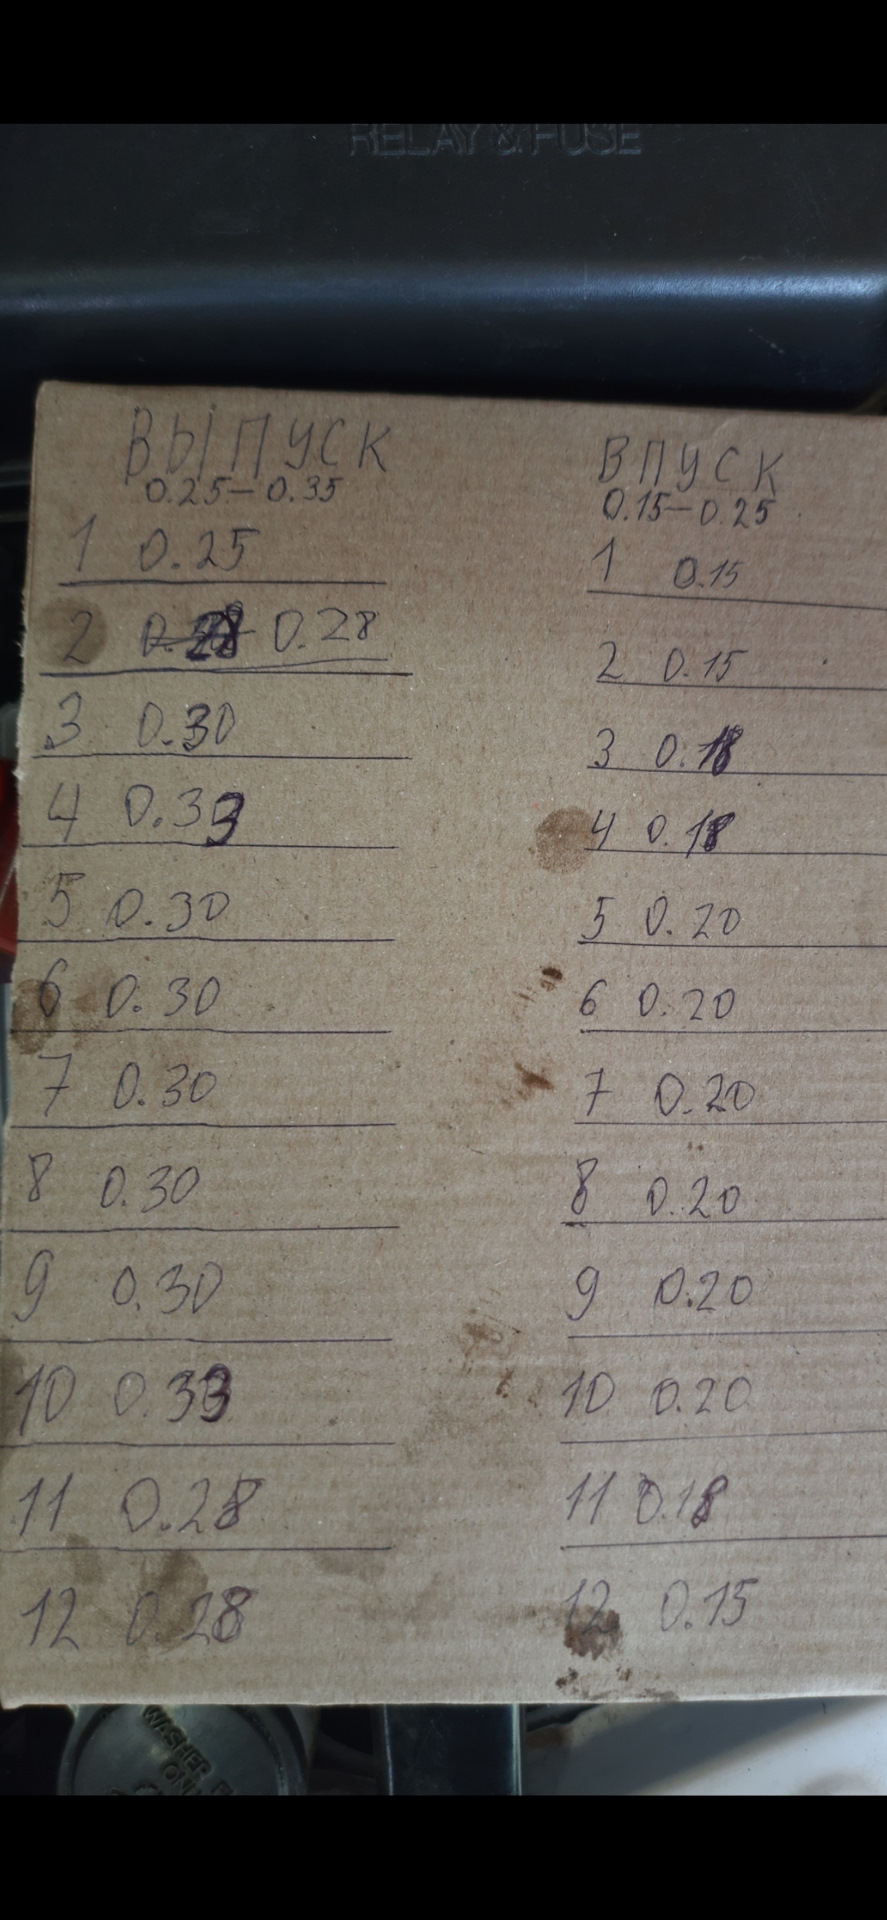 RELAY & FUSE
ВЫПУСК
0.25-0.35
1 0.25
2 0.28
3 0.30
4 0.33
5 0.30
6 0.30
7 0.30
8 0.30
9 0.30
10 0.33
11 0.28
12 0.28
ВПУСК
0.15-0.25
1 0.15
2 0.15
3 0.18
4 0.18
5 0.20
6 0.20
7 0.20
8 0.20
9 0.20
10 0.20
11 0.18
12 0.15
WASHER
ONLY